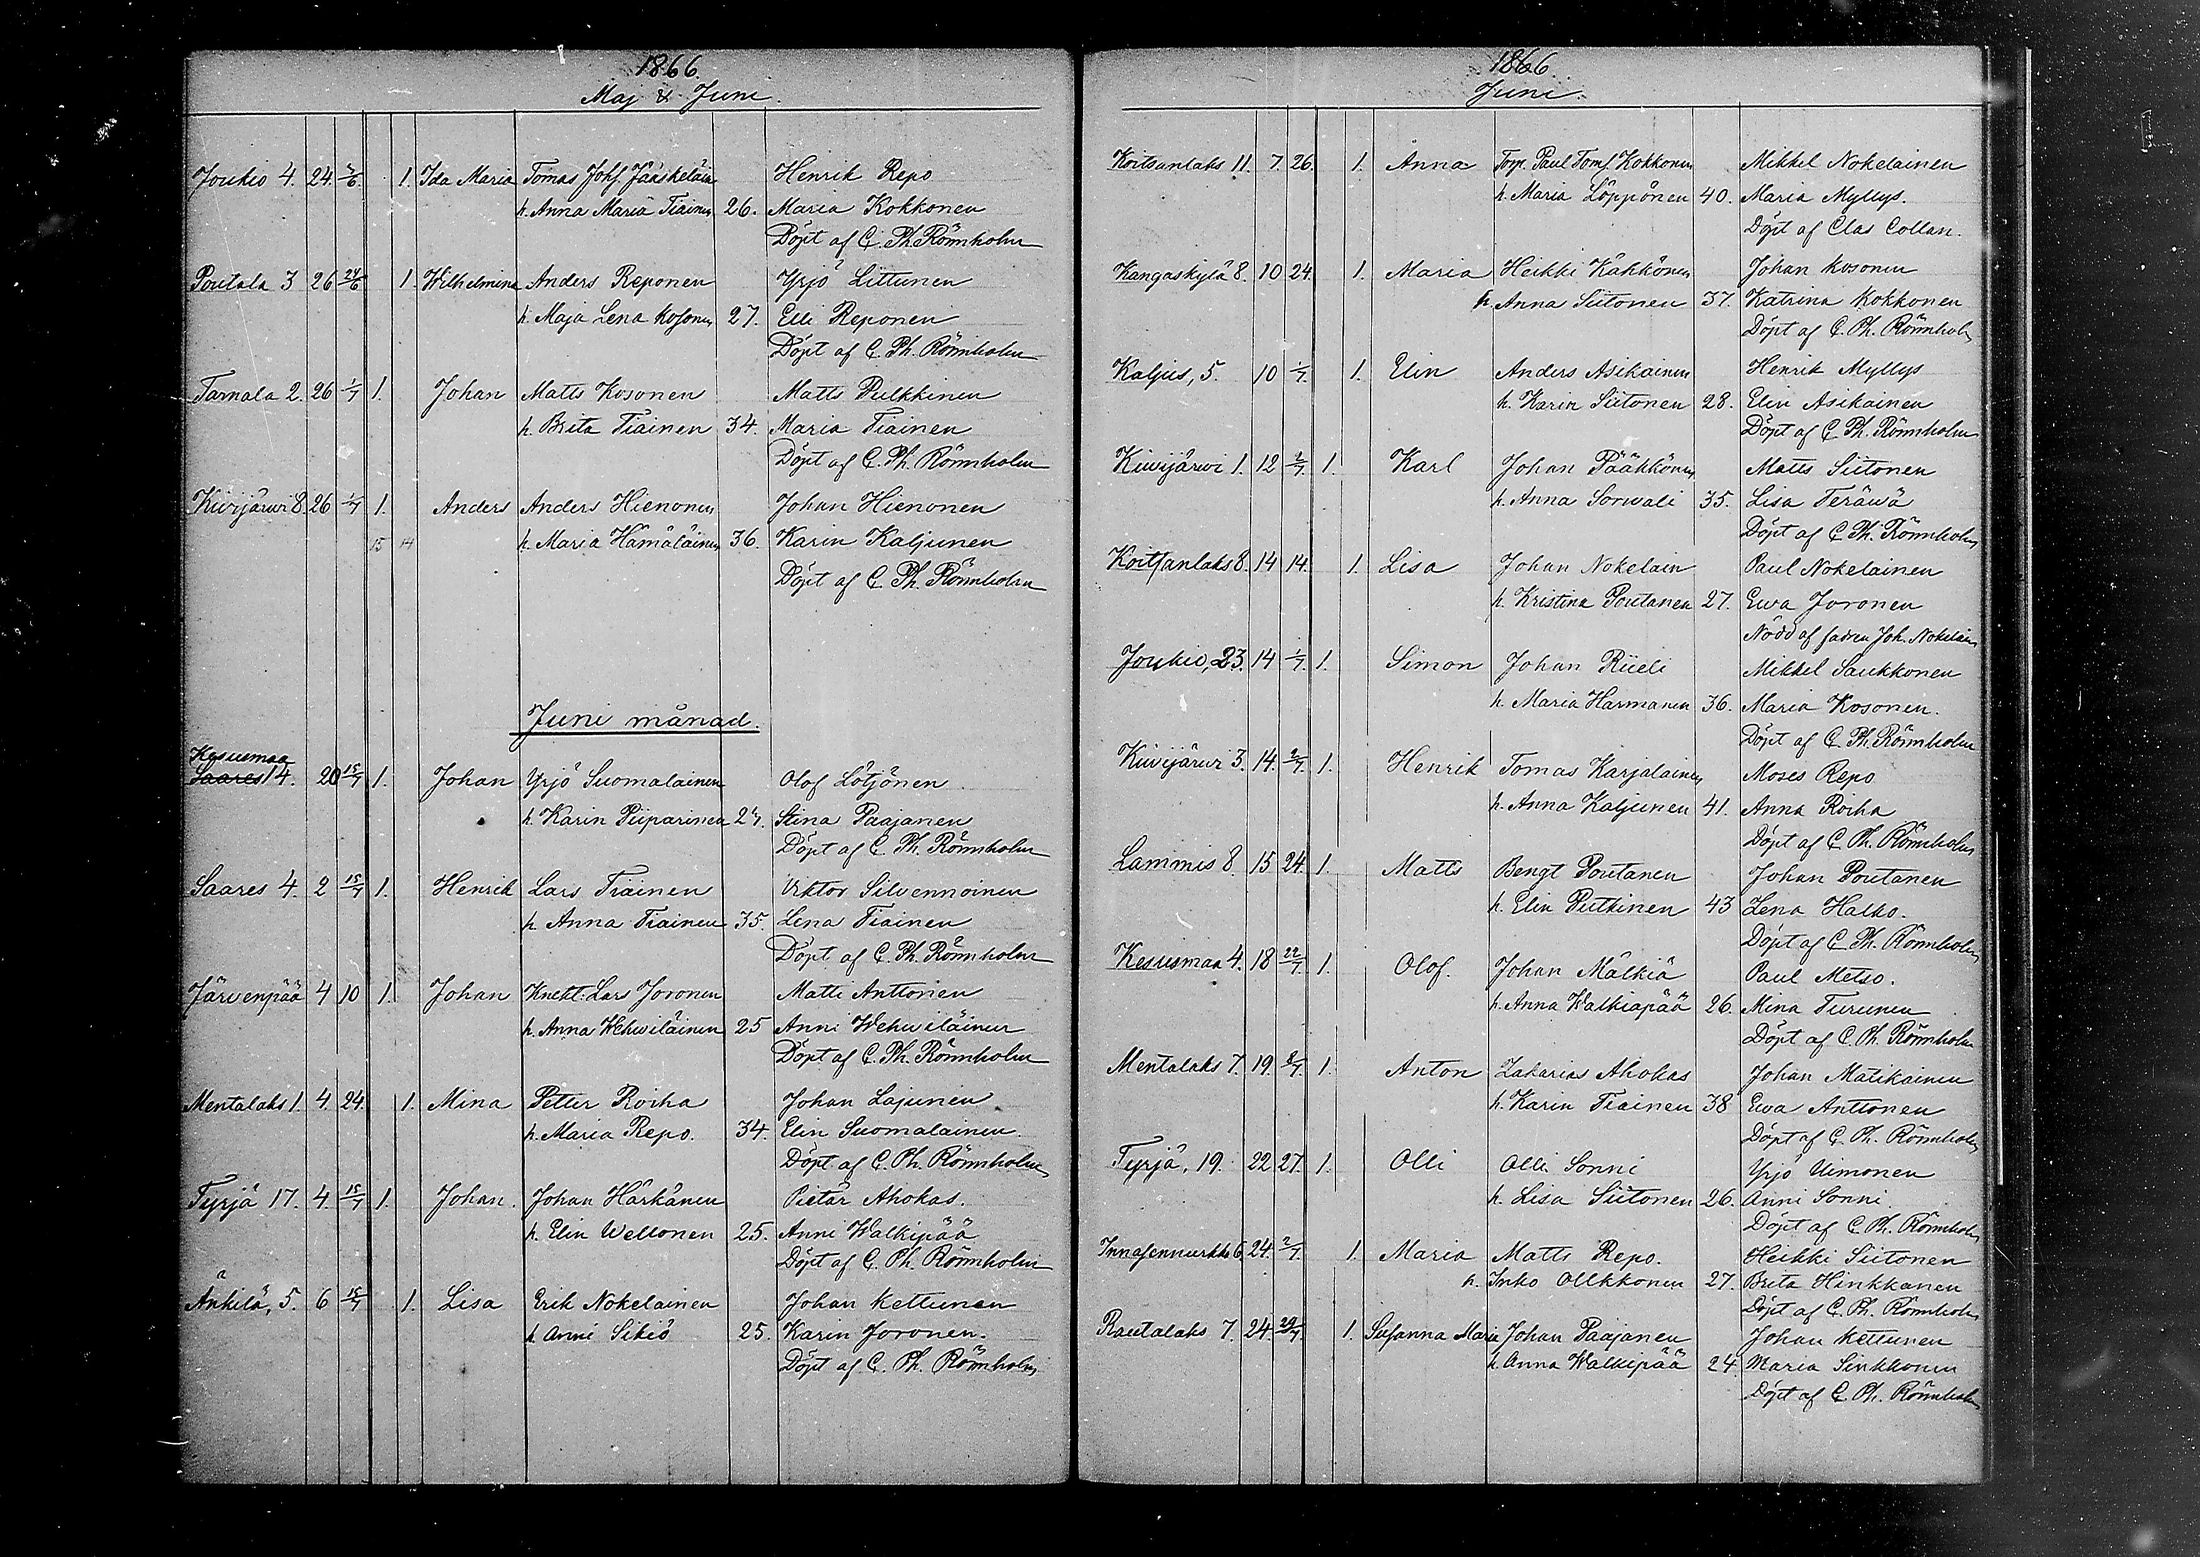 1866.
Maj & Juni.
Joukio 4. 24. 3/6 1. Ida Maria Tomas Johs Jääskeläin Henrik Repo
h. Anna Maria Tiainen 26. Maria Kokkonen
Döpt af C. Ph. Rönnholm
Poutala 3 26 24/6 1. Wilhelmina Anders Reponen Yrjö Littunen
h. Maja Lena Kosonen 27. Elli Reponen
Döpt af C. Ph. Rönnholm
Tarnala 2. 26 1/7 1. Johan Matts Kosonen Matts Pulkkinen
h. Brita Tiainen 34. Maria Tiainen
Döpt af C. Ph. Rönnholm
Kivijärwi 8. 26 1/7 1. Anders Anders Hienonen Johan Hienonen
15 14 h. Maria Hämäläinen 36. Karin Kaljunen
Döpt af C. Ph. Rönnholm
Juni månad.
Kesusmaa
Saares 14. 20 15/7 1. Johan Yrjö Suomalainen Olof Lötjönen
h. Karin Piiparinen 27. Stina Paajanen
Döpt af C. Ph. Rönnholm
Saares 4. 2 15/7 1. Henrik Lars Tiainen Viktor Silvennoinen
h. Anna Tiainen 35. Lena Tiainen
Döpt af C. Ph. Rönnholm
Järvenpää 4 10 1. Johan Knekt. Lars Joronen Matti Anttonen
h. Anna Wehwiläinen 25 Anni Wehwiläinen
Döpt af C. Ph. Rönnholm
Mentalaks 1. 4. 24. 1. Mina Petter Roiha Johan Lajunen
h. Maria Repo. 34. Elin Suomalainen.
Döpt af C. Ph. Rönnholm
Tyrjä 17. 4. 15/7 1. Johan. Johan Härkänen Pietär Ahokas.
h. Elin Wellonen 25. Anni Walkipää
Döpt af C. Ph. Rönnholm
Änkilä, 5. 6 15/7 1. Lisa Erik Nokelainen Johan Kettunen
h. Anni Sikiö 25. Karin Joronen.
Döpt af C. Ph. Rönnholm
1866
Juni.
Koitsanlaks 11. 7. 26. 1. Anna Torp. Paul Toms. Kokkonen Mikkel Nokelainen
h. Maria Löppönen 40. Maria Myllys.
Döpt af Clas Collan.
Kangaskylä 8. 10 24. 1. Maria Heikki Kähkönen Johan Kosonen
h. Anna Siitonen 37. Katrina Kokkonen
Döpt af C. Ph. Rönnholm
Kaljus, 5. 10 1/7. 1. Elin Anders Asikainen Henrik Myllys
h. Karin Siitonen 28. Elin Asikainen
Döpt af C. Ph. Rönnholm
Kiwijärwi 1. 12 2/7. 1. Karl Johan Pääkkönen Matts Siitonen
h. Anna Sorwali 35. Lisa Teräwä
Döpt af C. Ph. Rönnholm
Koitsanlaks 8. 14 14. 1. Lisa Johan Nokelain Paul Nokelainen
h. Kristina Poutanen 27. Ewa Joronen
Nödd. af fadren Joh. Nokelain
Joukio, 23. 14 1/7. 1. Simon Johan Riieli Mikkel Saukkonen
h. Maria Harmanen 36. Maria Kosonen.
Döpt af C. Ph. Rönnholm
Kiwijärwi 3. 14. 2/7. 1. Henrik Tomas Karjalainen Moses Repo
h. Anna Kaljunen 41. Anna Roiha
Döpt af C. Ph. Rönnholm
Lammis 8. 15 24. 1. Matts Bengt Poutanen Johan Poutanen
h. Elin Putkinen 43 Lena Halko.
Döpt af C. Ph. Rönnholm
Kesusmaa 4. 18 22/7 1. Olof. Johan Mälkiä Paul Metso.
h. Anna Walkiapää 26. Mina Turunen
Döpt af C. Ph. Rönnholm
Mentalaks 7. 19. 8/7. 1. Anton Zakarias Ahokas Johan Matikainen
h. Karin Tiainen 38 Ewa Anttonen
Döpt af C. Ph. Rönnholm
Tyrjä, 19. 22 27. 1. Olli Olli Sonni Yrjö Uimonen
h. Lisa Siitonen 26. Anni Sonni.
Döpt af C. Ph. Rönnholm
6. 24. 2/7. 1. Maria Matts Repo. Heikki Siitonen
h. Inko Ollkkonen 27. Brita Hinkkanen
Döpt af C. Ph. Rönnholm
Rautalaks 7. 24. 29/7. 1. Susanna Maria Johan Paajanen Johan Kettunen
h. Anna Walkipää 24 Maria Sinkkonen
Döpt af C. Ph. Rönnholm